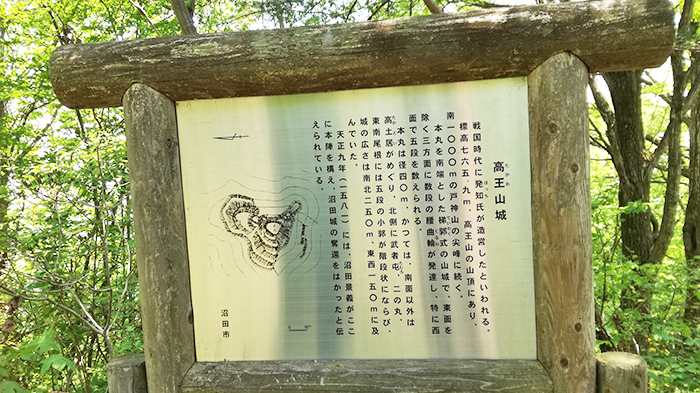 高王山城
たかお
戦国時代に発知氏が造営したといわれる。
ほっち
標高七六五・九m、高王山の山頂にあり、
南一〇〇〇mの戸神山の尖峰に続く。
本丸を南端とした梯郭式の山城で、東面を
除く三方面に数段の腰曲輪が発達し、特に西
面で五段を数えられる。
本丸は径四〇m、かつては、南面以外は
高土居がめぐり、北側に武者屯、二の丸、
東南尾根には五段の小郭が階段状にならび、
城の広さは南北二五〇m、東西一五〇mに及
んでいた。
天正九年(一五八一)には、沼田景義がここ
に本陣を構え、沼田城の奪還をはかったと伝
えられている。
沼田市